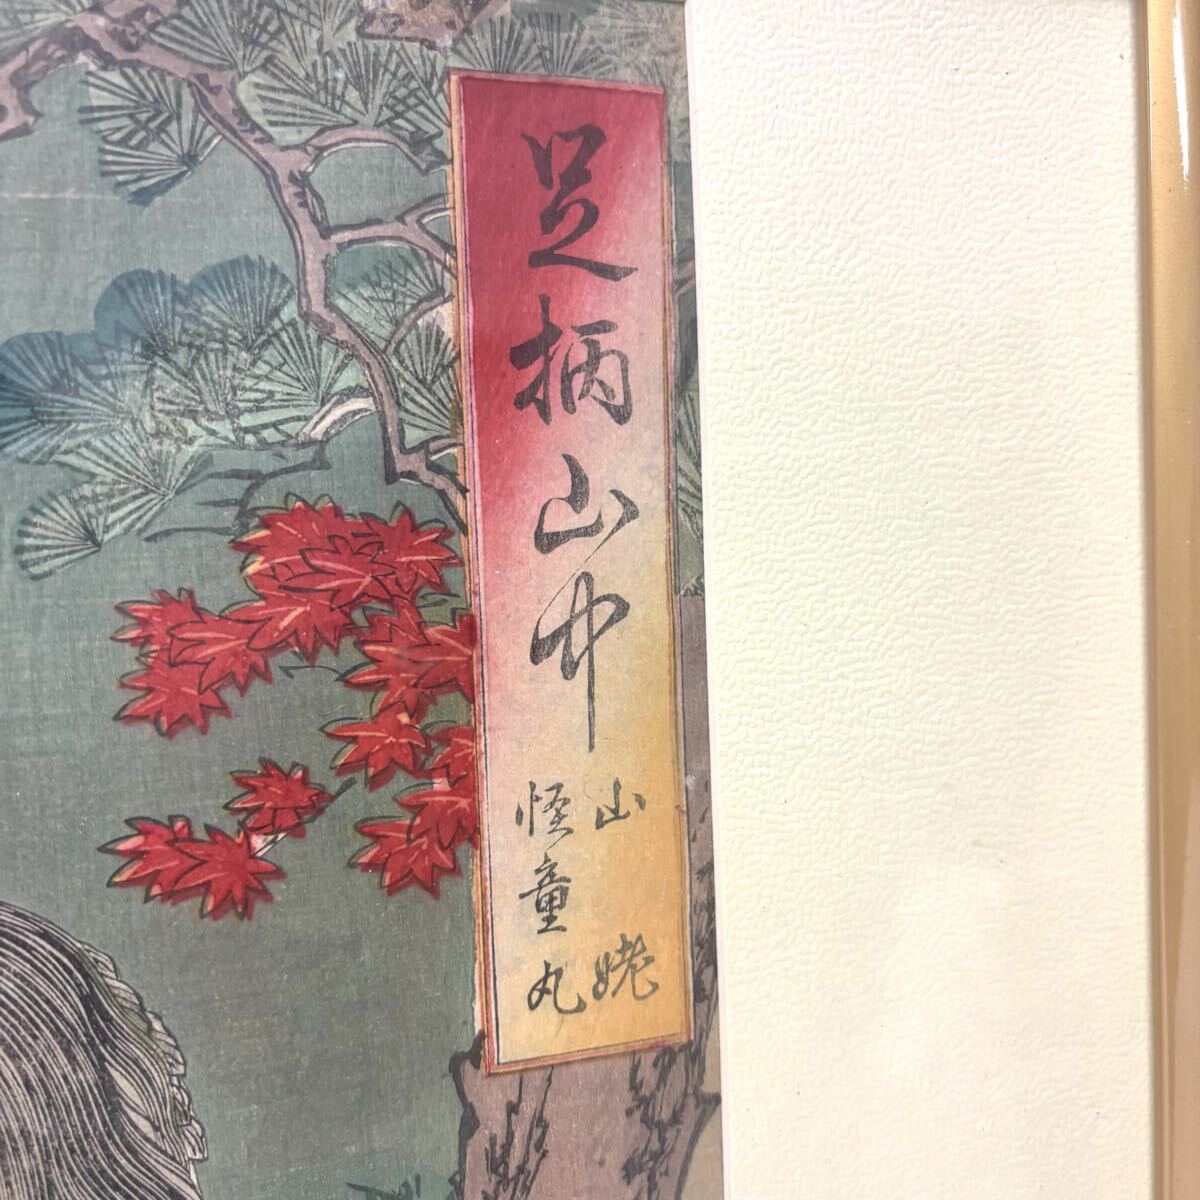 足柄山中
山姥
怪童丸